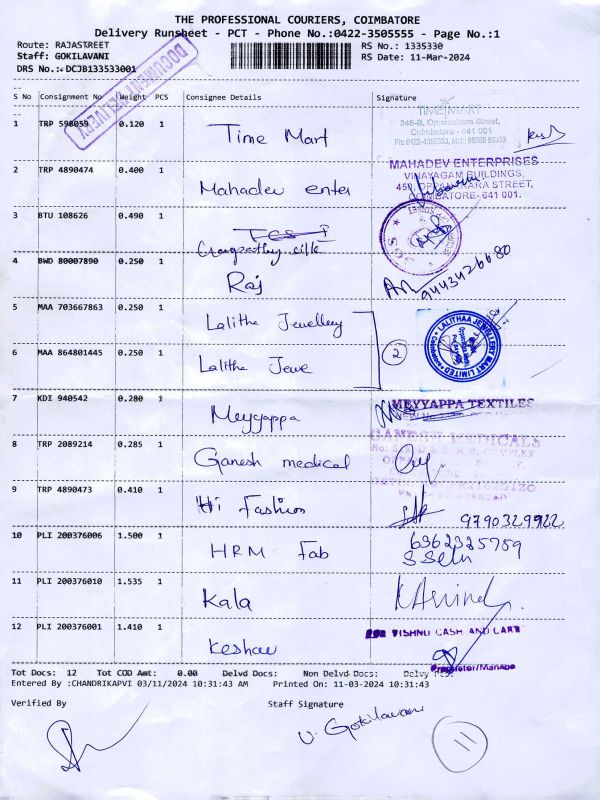 THE PROFESSIONAL COURIERS, COIMBATORE
Delivery Runsheet - PCT - Phone No.:0422-3505555 - Page No.:1
Route: RAJASTREET RS No.: 1335330
Staff: GOKILAVANI RS Date: 11-Mar-2024
DRS No.: DCJB133533001
DOCUMENT DELIVERY
S No Consignment No Weight PCS Consignee Details Signature
1 TRP 598059 0.120 1 Time Mart
TIME MART
346-B, Oppanakara Street,
Coimbatore - 641 001
2 TRP 4890474 0.400 1 Mahadev enter
MAHADEV ENTERPRISES
VINAYAGAM BUILDINGS,
OPPANAKARA STREET,
COIMBATORE- 641 001.
3 BTU 108626 0.490 1
silk
4 BWD 80007890 0.250 1 Raj
9443426680
5 MAA 703667863 0.250 1 Lalitha Jewellery
6 MAA 864801445 0.250 1 Lalitha Jewe
2
LALITHAA JEWELLERY MART LIMITED
7 KDI 940542 0.280 1 Meyyappa
MEYYAPPA TEXTILES
8 TRP 2089214 0.285 1 Ganesh medical
GANESH MEDICALS
9 TRP 4890473 0.410 1 Hi Fashion
9790329922
10 PLI 200376006 1.500 1 HRM Fab
11 PLI 200376010 1.535 1 Kala
K Arvind
12 PLI 200376001 1.410 1 Keshav
VISHNU CASH AND CARY
Tot Docs: 12 Tot COD Amt: 0.00 Delvd Docs: Non Delvd Docs: Delvy
Entered By :CHANDRIKAPVI 03/11/2024 10:31:43 AM Printed On: 11-03-2024 10:31:43
Verified By Staff Signature
V. Gokilavani
11